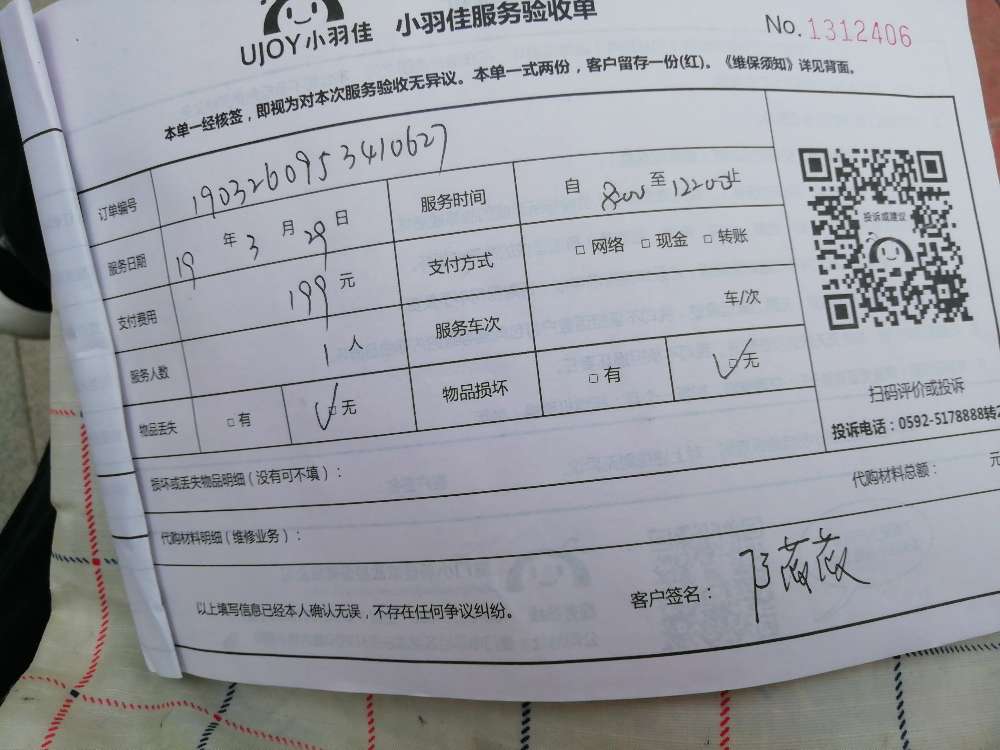 UJOY小羽佳 小羽佳服务验收单 No.1312406
本单一经核签，即视为对本次服务验收无异议。本单一式两份，客户留存一份(红)。《维保须知》详见背面。
订单编号 1903260953410627
服务日期 19 年 3 月 29 日 服务时间 自 800 至 1200止
支付费用 199 元 支付方式 □ 网络 □ 现金 □ 转账
服务人数 1 人 服务车次 车/次
物品丢失 □ 有 ☑ 无 物品损坏 □ 有 ☑ 无
投诉或建议
扫码评价或投诉
投诉电话：0592-5178888转2
损坏或丢失物品明细（没有可不填）：
代购材料明细（维修业务）： 代购材料总额： 元
以上填写信息已经本人确认无误，不存在任何争议纠纷。 客户签名： 薇薇